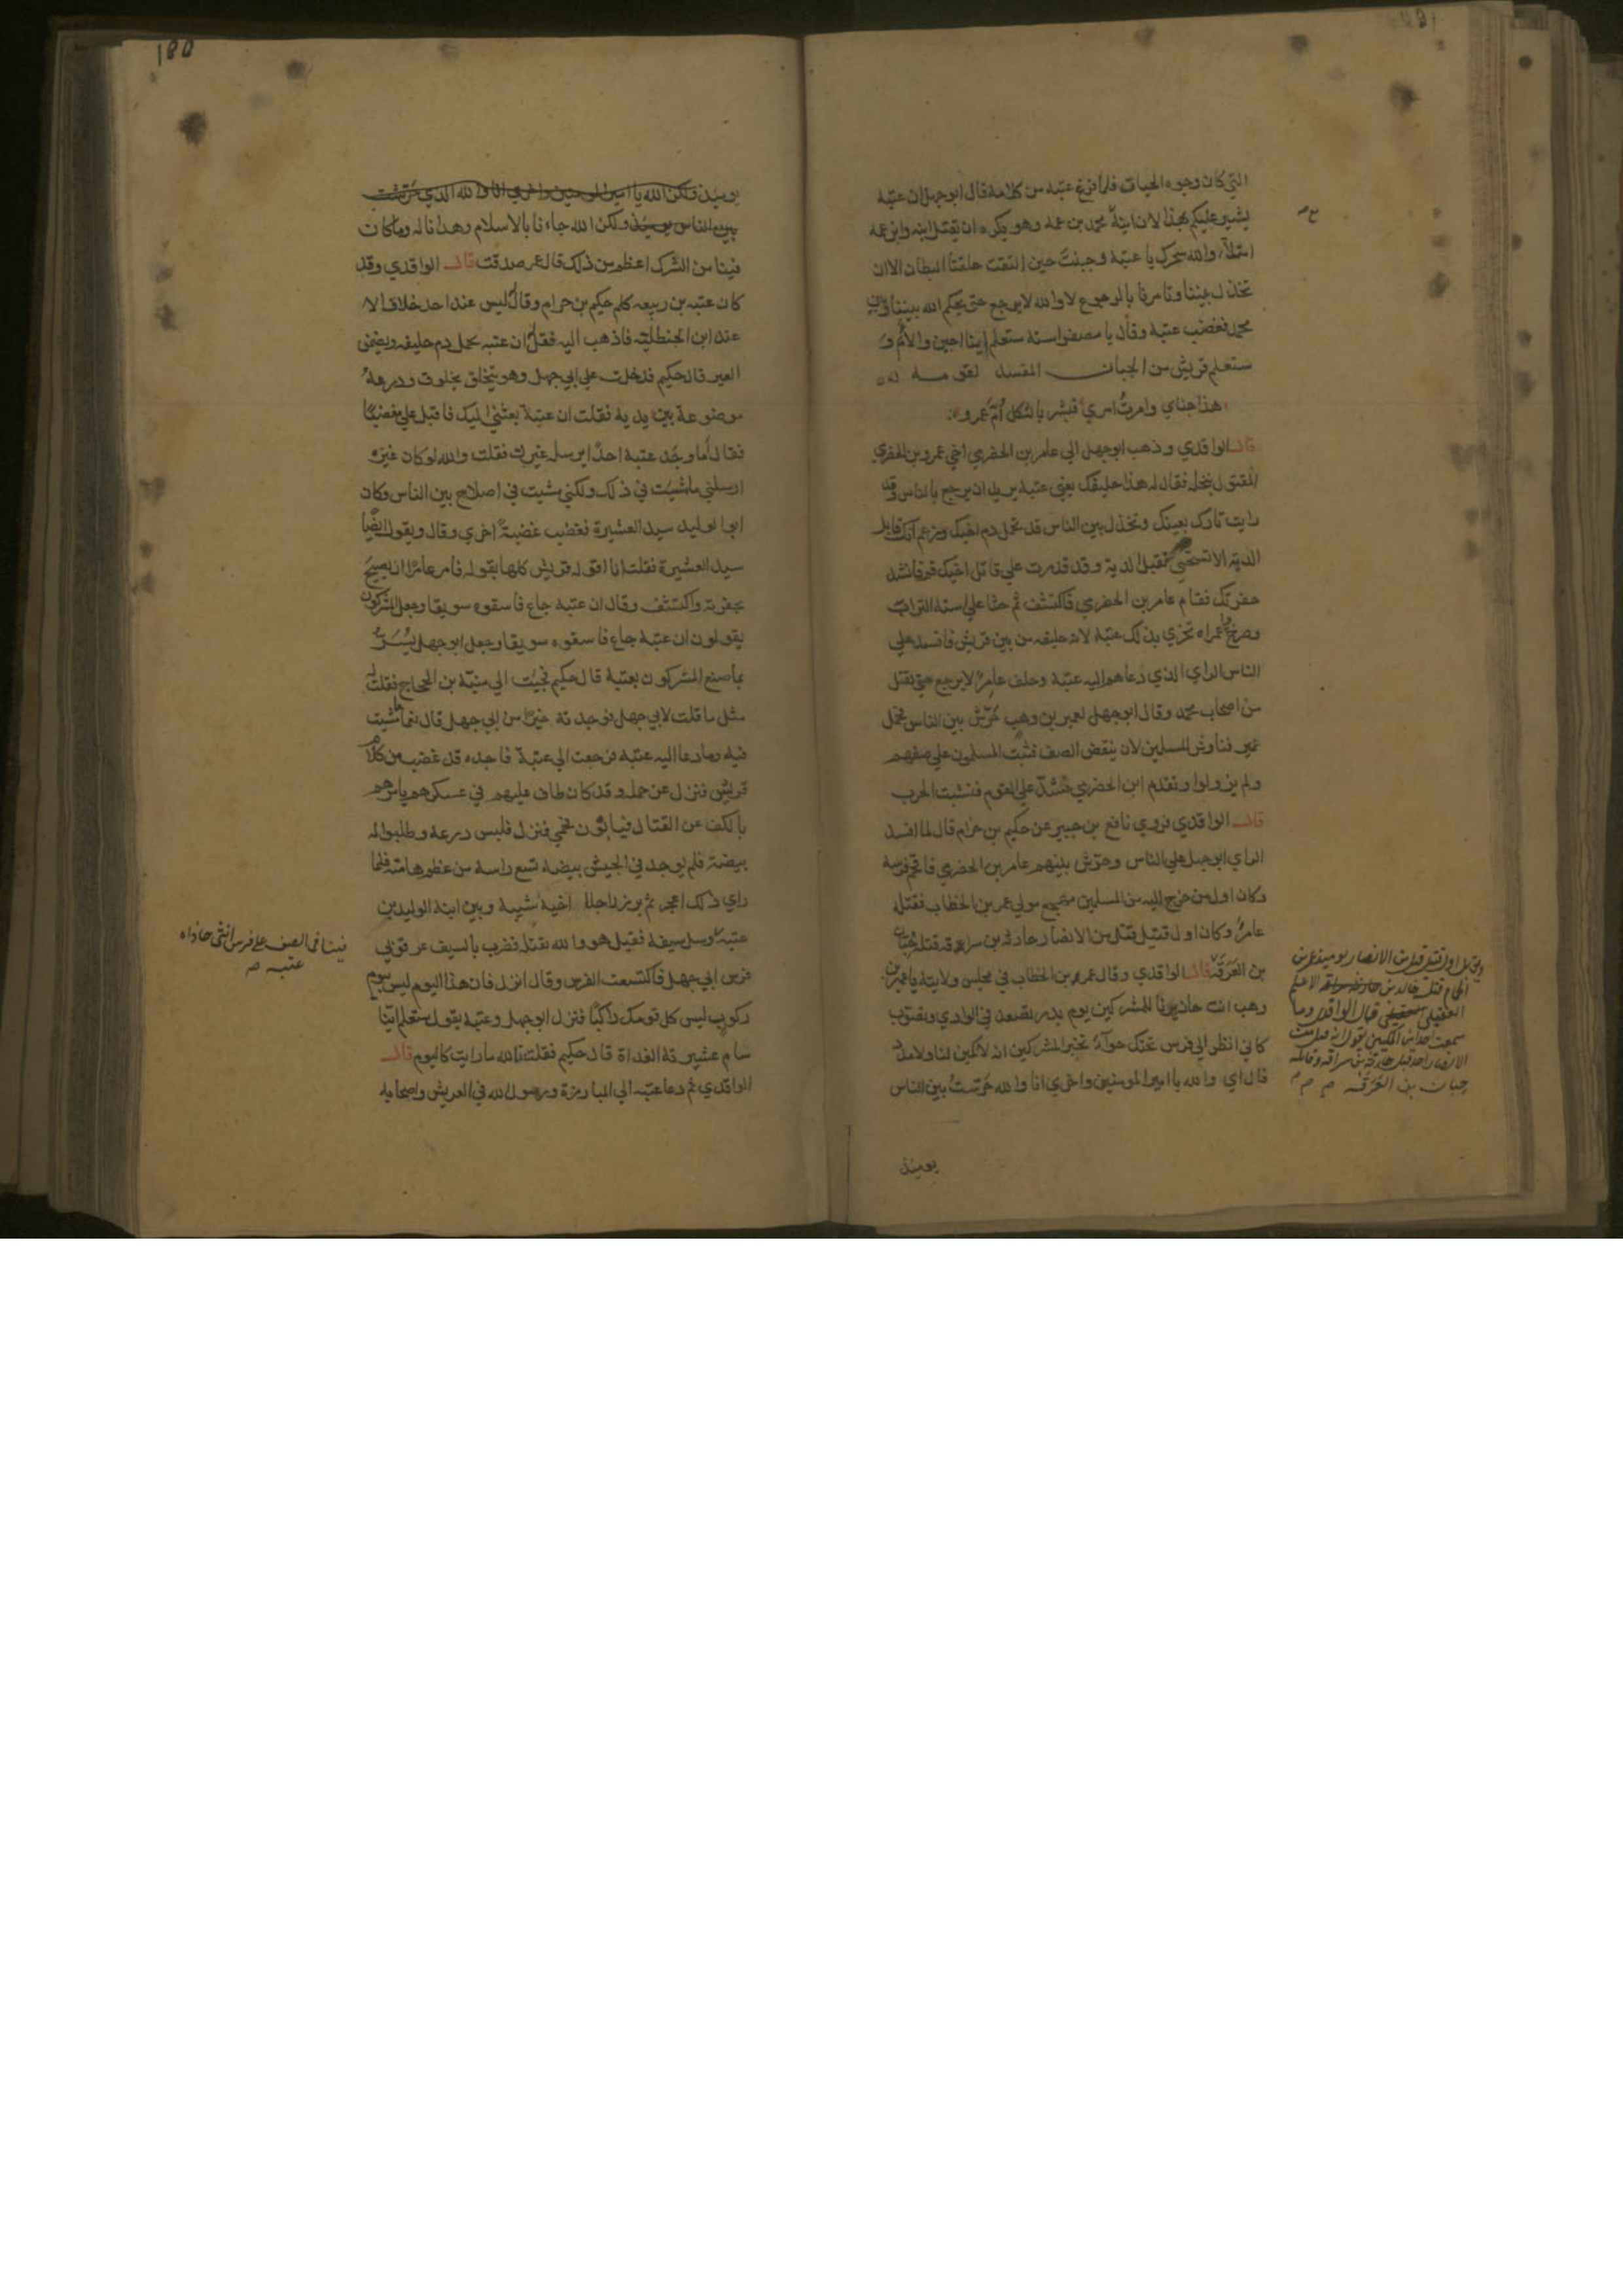 التي كان وجوه الحيات فلما فرغ عتبه من كلامه قال ابو جهل ان عتبه
يشير عليكم بهذا لان ابنه محمد بن عمه وهو يكره ان يقتل ابنه وابن عمه
امتلأ والله سحرك يا عتبة وجبنت حين التقت حلقتا البطان الان
تخذل بيننا وتامرنا بالرجوع لا والله لا نرجع حتى يحكم الله بيننا وبين
محمد فغضب عتبة وقال يا مصفر استه ستعلم اينا اجبن والأم و
ستعلم قريش من الجبان المفسد لقومه
هذا جناي وامرت امري فبشر بالثكل ام عمرو
قال الواقدي وذهب ابو جهل الي عامر بن الحضرمي اخي عمرو بن الحضرمي
المقتول بنخلة فقال له هذا حليفك يعني عتبة يريد ان يرجع بالناس وقد
رايت ثارك بعينك وتخذل بين الناس قد تحمل دم اخيك وزعم انك قابل
الدية الا تستحيي تقبل الدية وقد قدرت علي قاتل اخيك قم فانشد
خفرتك فقام عامر بن الحضرمي فاكتشف ثم حثا علي استه التراب
وصرخ واعمراه يخزي بذلك عتبة لانه حليفه من بين قريش فافسد علي
الناس الراي الذي دعاهم اليه عتبة وحلف عامر لا يرجع حتي يقتل
من اصحاب محمد وقال ابو جهل لعمير بن وهب حرش بين الناس فحمل
عمير فناوش المسلمين لان ينقض الصف فثبت المسلمون علي صفهم
ولم يزولوا وتقدم ابن الحضرمي فشد علي القوم فنشبت الحرب
قال الواقدي فروي نافع بن جبير عن حكيم بن حزام قال لما افسد
الراي ابو جهل علي الناس وحرش بينهم عامر بن الحضرمي فاقحم فرسه
وكان اول من خرج اليه من المسلمين مهجع مولي عمر بن الخطاب فقتله
عامر وكان اول قتيل قتل من الانصار حارثة بن سراقه قتله حبان
بن العرقة قال الواقدي وقال عمر بن الخطاب في مجلس ولايته يا عمير بن
وهب انت حاذرنا للمشركين يوم بدر تصعد في الوادي وتصوب
كاني انظر الي فرس تحتك حواء تخبر المشركين انه لا كمين لنا ولا مدد
قال اي والله يا امير المومنين واخري انا والله حرشت بين الناس
يوميذ
بين الناس يوميذ ولكن الله جاءنا بالاسلام وهدانا له وما كان
فينا من الشرك اعظم من ذلك قال عمر صدقت قال الواقدي وقد
كان عتبه بن ربيعه كلم حكيم بن حزام وقال ليس عند احد خلاف الا
عند ابن الحنظليه فاذهب اليه فقل ان عتبه يحمل دم حليفه ويضمن
العير قال حكيم فدخلت علي ابي جهل وهو يتخلق بخلوق ودرعه
موضوعة بين يديه فقلت ان عتبة بعثني اليك فاقبل علي مغضبًا
فقال أما وجد عتبة احدًا يرسله غيرك فقلت والله لو كان غيره
ارسلني ما مشيت في ذلك ولكني مشيت في اصلاح بين الناس وكان
ابو الوليد سيد العشيرة فغضب غضبة اخري وقال وتقول ايضًا
سيد العشيرة فقلت انا اقوله قريش كلها تقوله فأمر عامرًا ان يصيح
بخفرته واكتشف وقال ان عتبة جاع فاسقوه سويقا وجعل المشركون
يقولون ان عتبة جاع فاسقوه سويقا وجعل ابو جهل يسر
بما صنع المشركون بعتبة قال حكيم فجئت الي منبه بن الحجاج فقلت له
مثل ما قلت لابي جهل فوجدته خيرًا من ابي جهل قال نعما مشيت
فيه وما دعا اليه عتبة فرجعت الي عتبة فاجده قد غضب من كلام
قريش فنزل عن جمله وقد كان طاف عليهم في عسكرهم يامرهم
بالكف عن القتال فيأبون فحمي فنزل فلبس درعه وطلبوا له
بيضة فلم يوجد في الجيش بيضه تسع راسه من عظم هامته فلما
راي ذلك اعتجر ثم برز راجلا اخيه شيبة وبين ابنه الوليد بن
عتبة وسل سيفه فقيل هو والله يقتله فضرب بالسيف عرقوبي
فرس ابي جهل فاكتسعت الفرس وقال انزل فان هذا اليوم ليس بيوم
ركوب ليس كل قومك راكبًا فنزل ابو جهل وعتبة يقول ستعلم اينا
شام عشيرته الغداة قال حكيم فقلت تالله ما رايت كاليوم قال
الواقدي ثم دعا عتبه الي المبارزة ورسول الله في العريش واصحابه
فبينا في الصف علي فرس انثي حاذاه
عتبه صح